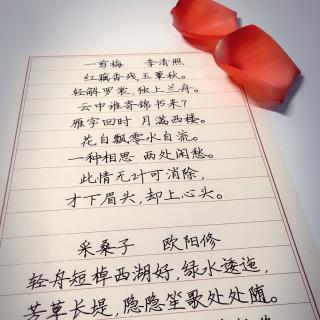 一剪梅 李清照
红藕香残玉簟秋。
轻解罗裳,独上兰舟。
云中谁寄锦书来?
雁字回时 月满西楼。
花自飘零水自流。
一种相思 两处闲愁。
此情无计可消除,
才下眉头,却上心头。
采桑子 欧阳修
轻舟短棹西湖好,绿水逶迤,
芳草长堤,隐隐笙歌处处随。